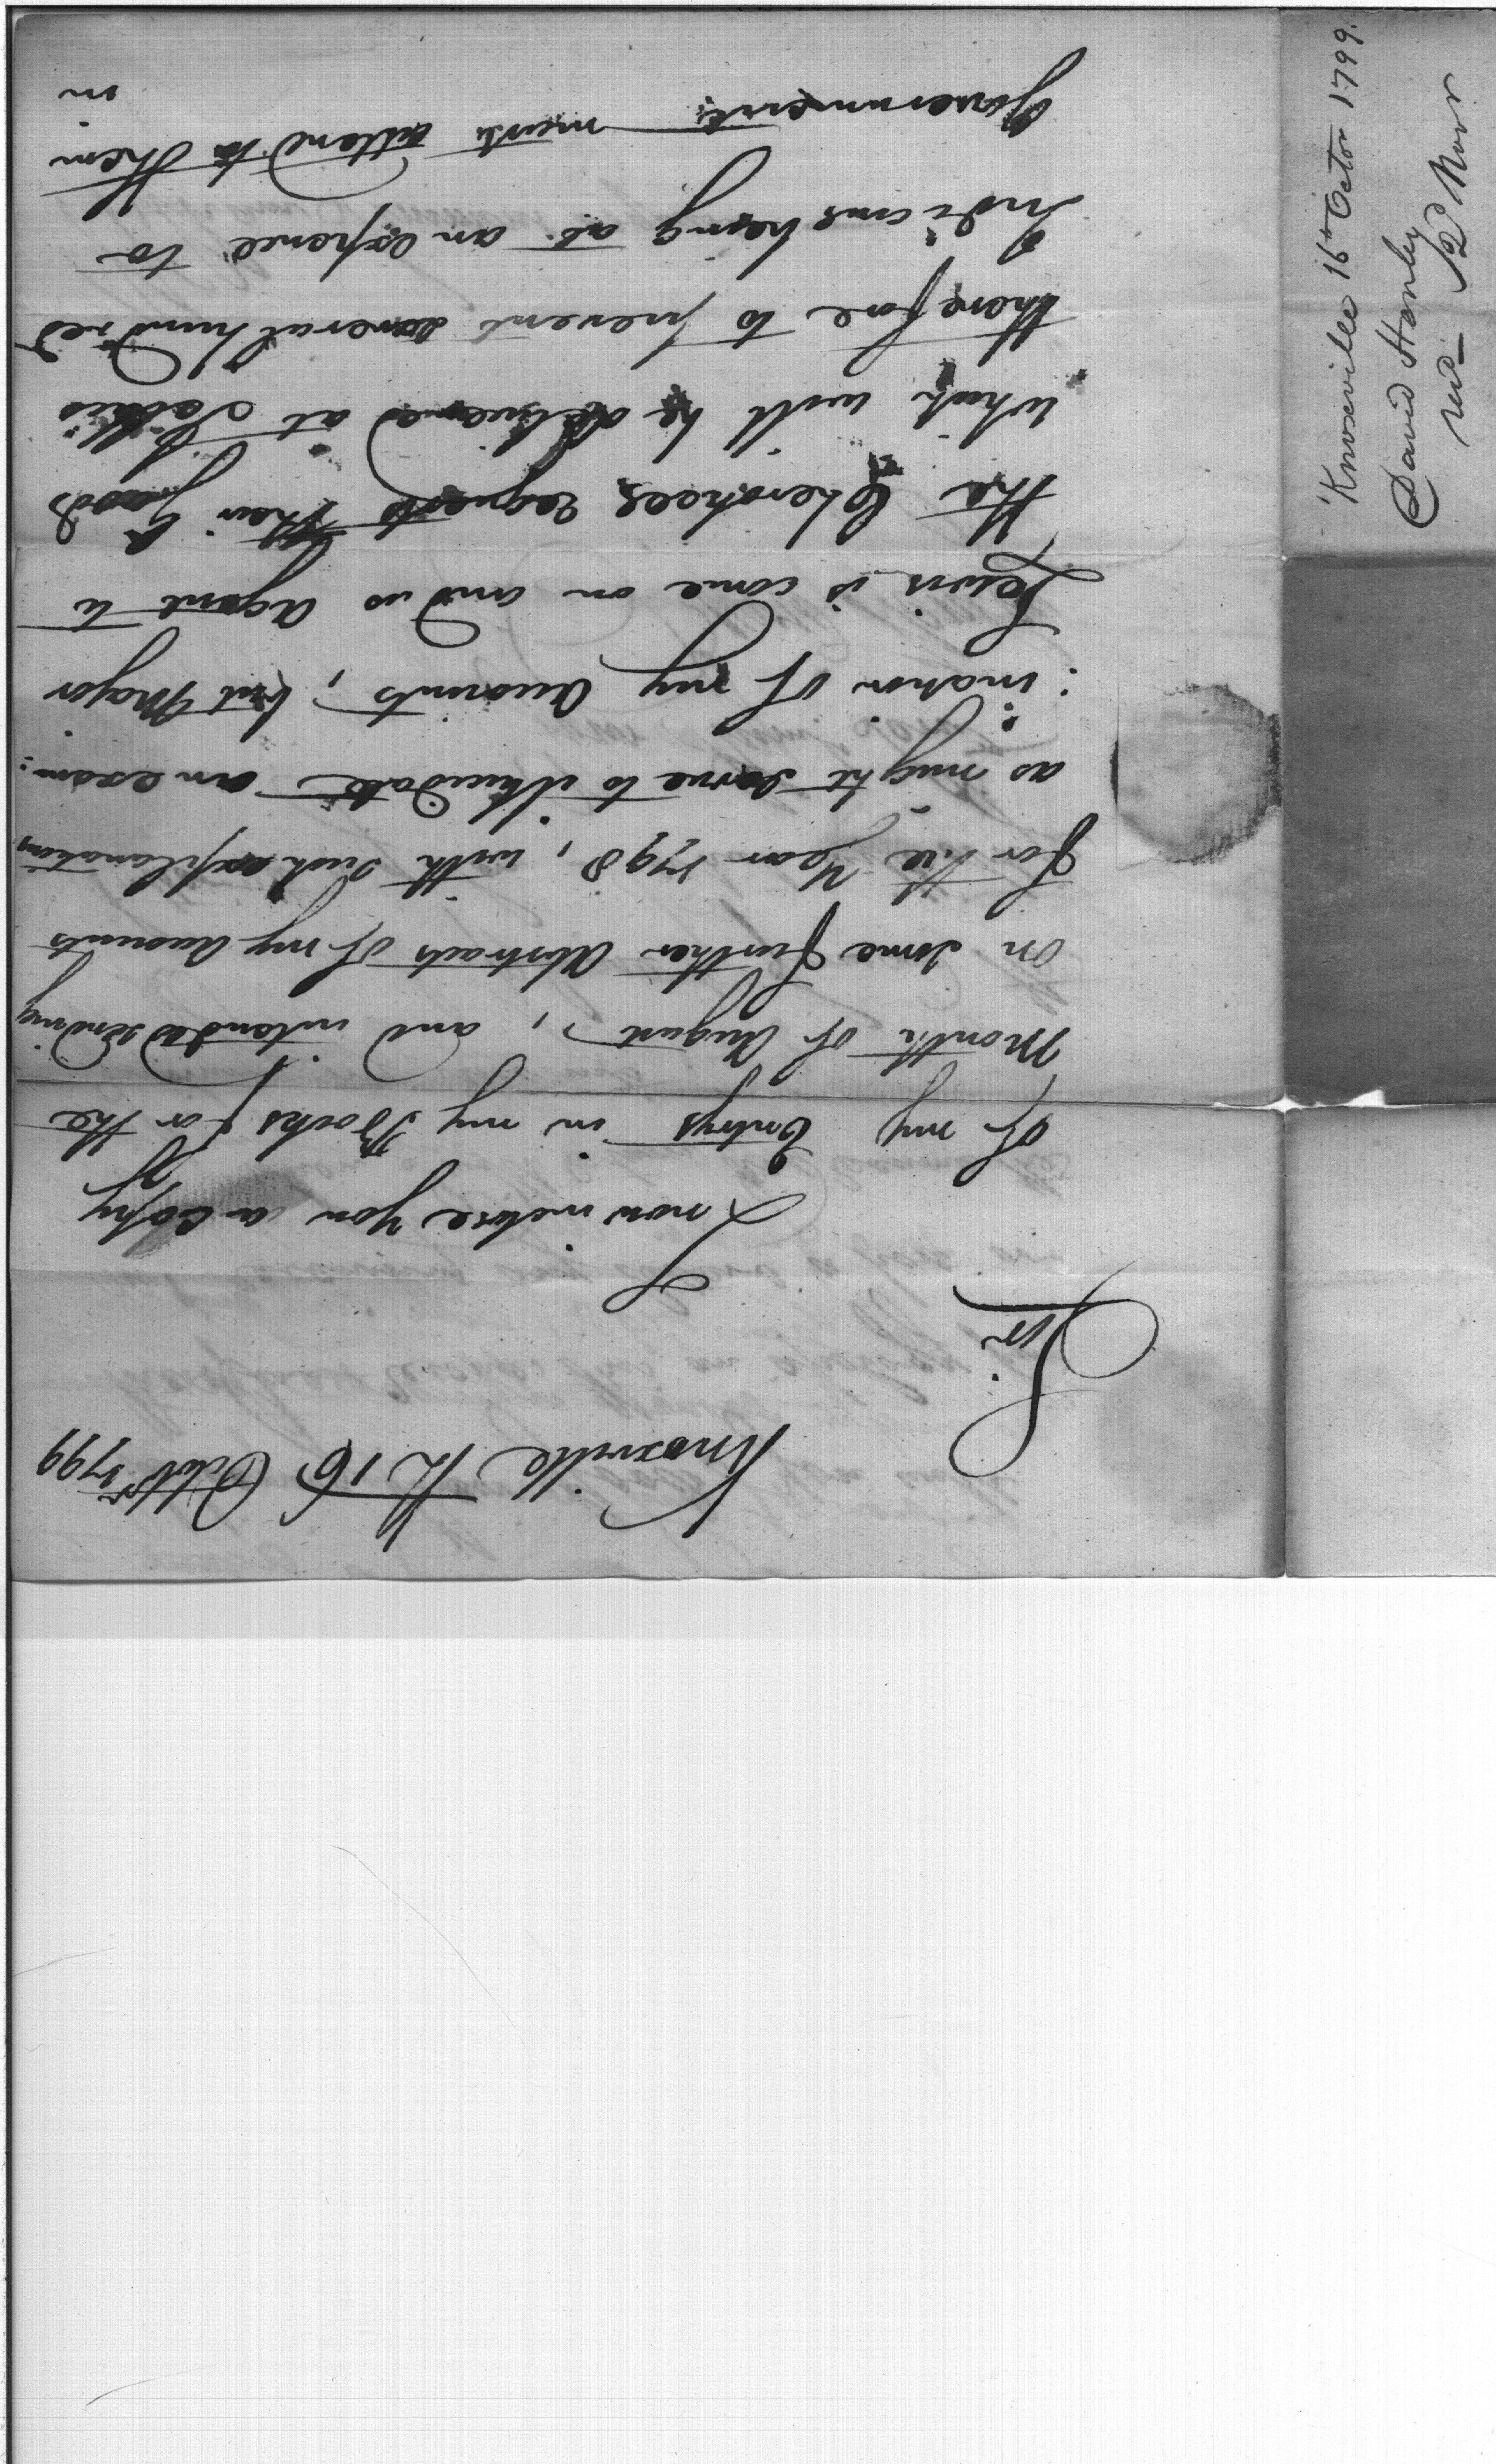 Knoxville th 16 Octobr 1799
Sir
I now inclose you a Copy
of my Entrys in my Books for the
Month of August, and intended sending
on some further Abstracts of my Accounts
for the Year 1798, with such explanations
as might serve to elucidate an exam:
:ination of my Accounts; but Major
Lewis is come on and as agent to
the Cherokees, requests their Goods
which will be delivered at
therefore to prevent several hundred
Indians being at an expence to
Government, must attend to them
in
Knoxville 16th Octor 1799.
David Henley
recd. 2d Novr